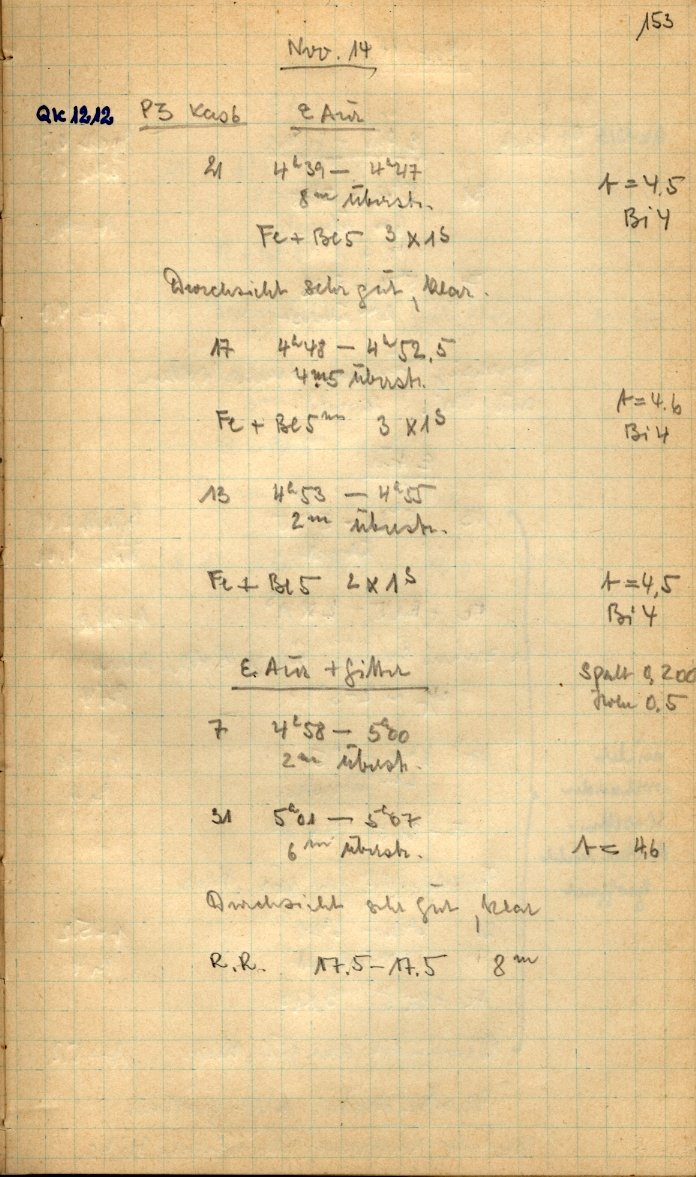 153
Nov. 14
QK1212 P3 Kas6 ε Aur
21 4ʰ39 — 4ʰ47
8ᵐ überstr.
t = 4.5
Bi 4
Fe + Be5 3 x 1ˢ
Durchsicht sehr gut, klar.
17 4ʰ48 — 4ʰ52,5
4ᵐ5 überstr.
t = 4.6
Fe + Be5ᵐ 3 x 1ˢ
Bi 4
13 4ʰ53 — 4ʰ55
2ᵐ überstr.
Fe + Be5 2 x 1ˢ
t = 4,5
Bi 4
ε. Aur + Gitter
Spalt 0,200
0.5
7 4ʰ58 — 5ʰ00
2ᵐ überstr.
31 5ʰ01 — 5ʰ07
6ᵐ überstr.
t = 4,6
Durchsicht sehr gut, klar
R.R. 17.5–17.5 8ᵐ